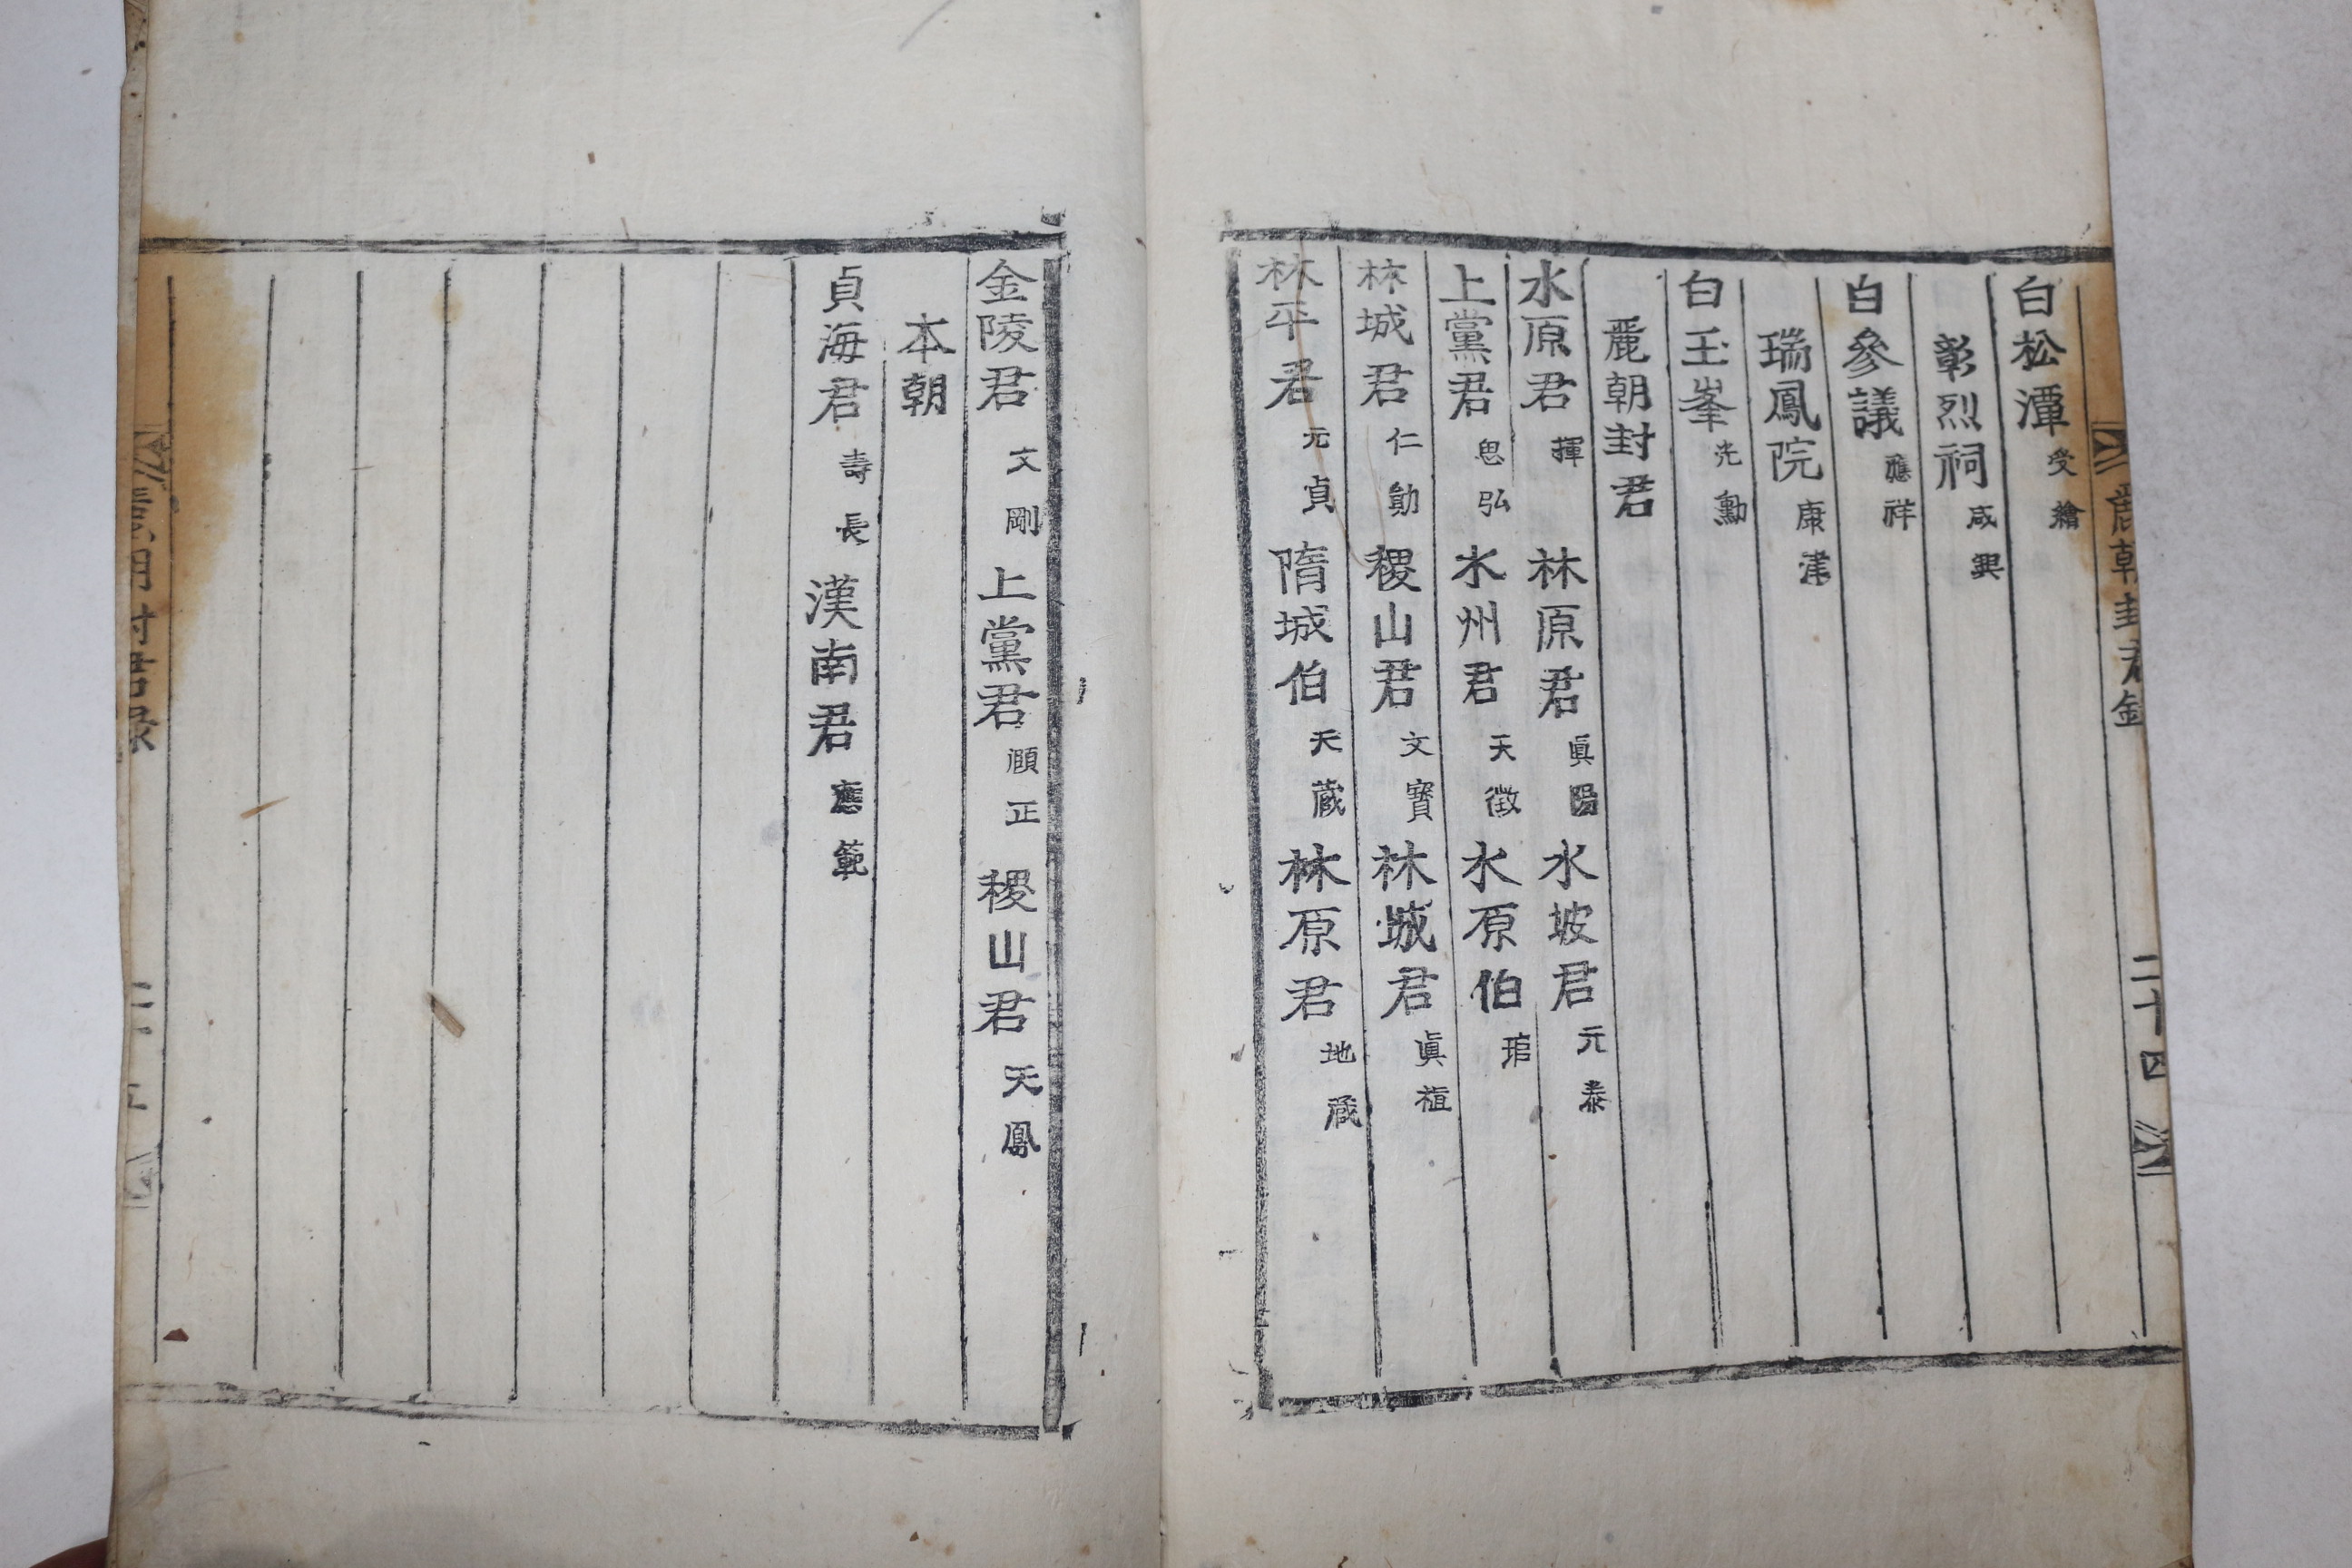 麗朝封君錄
二十四
白松潭 受繪
彰烈祠 咸興
白參議 應祥
瑞鳳院 康津
白玉峯 光勳
麗朝封君
水原君 揮 林原君 眞 水坡君 元泰
上黨君 思弘 水州君 天徵 水原伯 琯
林城君 仁勛 稷山君 文寶 林城君 眞植
林平君 元貞 隋城伯 天蔵 林原君 地蔵
金陵君 文剛 上黨君 願正 稷山君 天鳳
本朝
貞海君 壽長 漢南君 應範